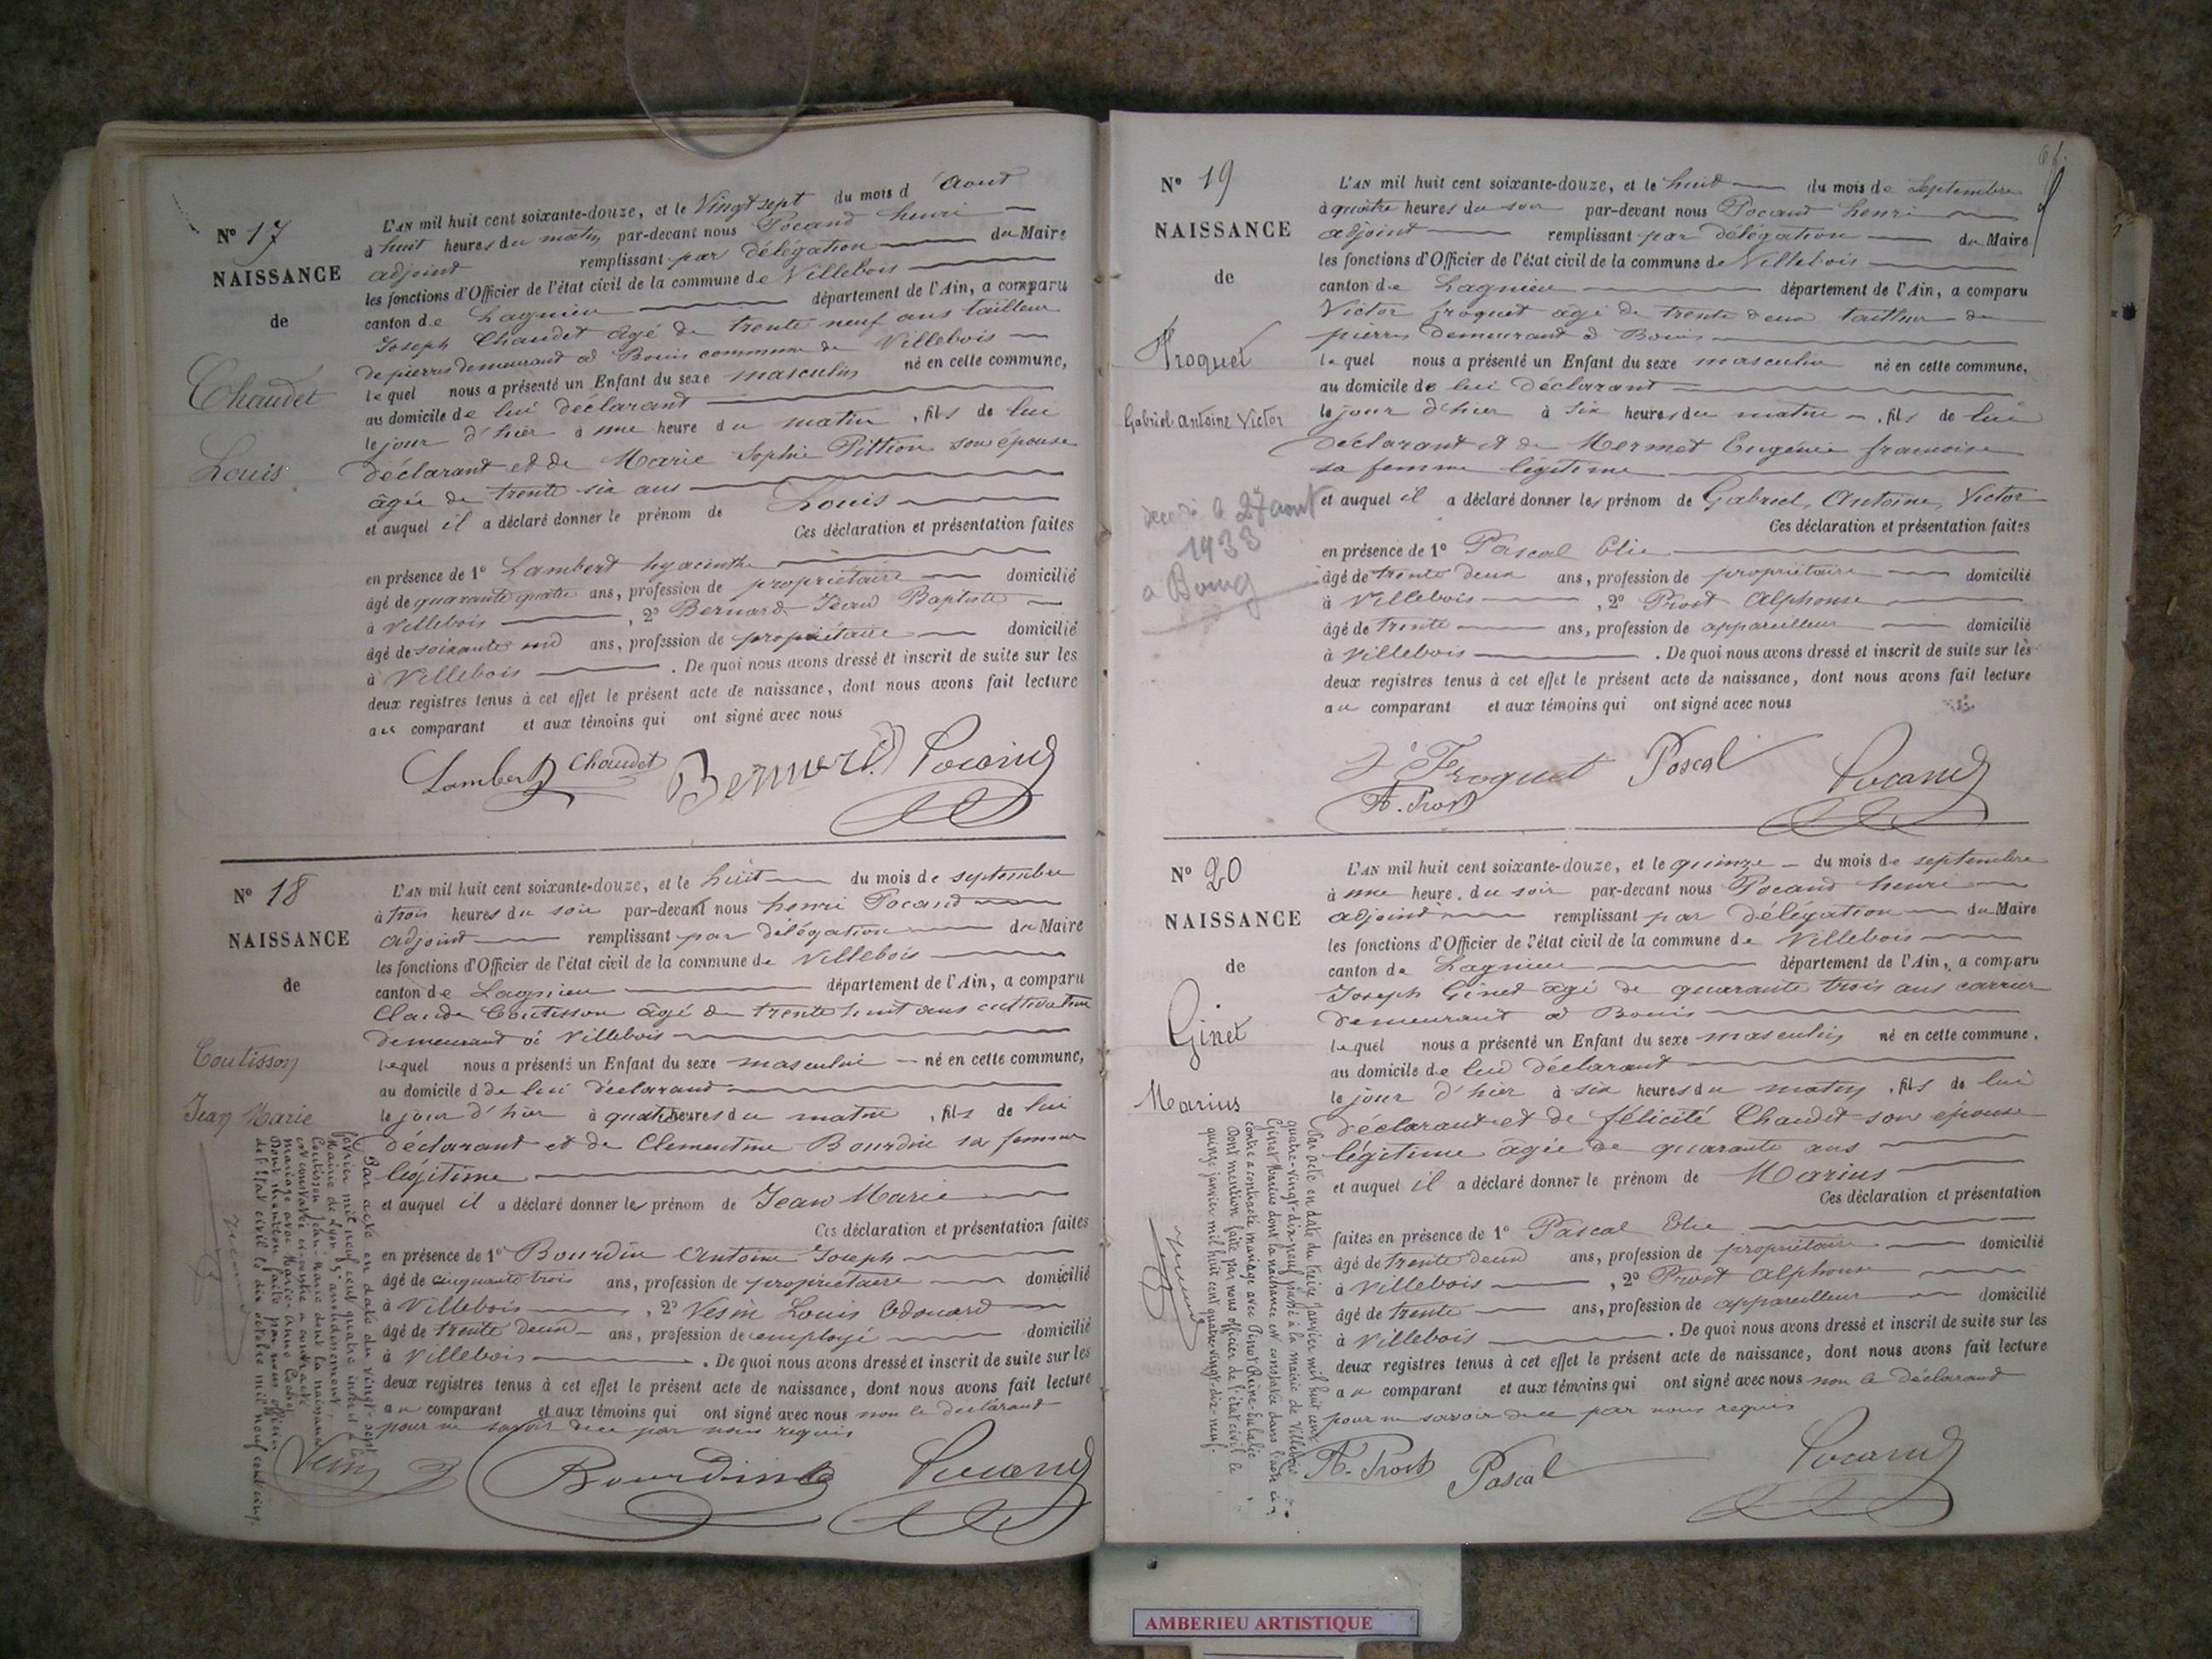 Nº 17
NAISSANCE
de
Chaudet
Louis
L'AN mil huit cent soixante-douze, et le Vingt sept du mois d'Aout
à huit heures du matin par-devant nous Pocand henri
adjoint remplissant par délégation du Maire
les fonctions d'Officier de l'état civil de la commune de Villebois
canton de Lagnieu département de l'Ain, a comparu
Joseph Chaudet âgé de trente neuf ans tailleur
de pierres demeurant à Bouis commune de Villebois
lequel nous a présenté un Enfant du sexe masculin né en cette commune,
au domicile de lui déclarant
le jour d'hier à une heure du matin, fils de lui
déclarant et de Marie Sophie Pittion son épouse
âgée de trente six ans
et auquel il a déclaré donner le prénom de Louis
Ces déclaration et présentation faites
en présence de 1º Lambert hyacinthe
âgé de quarante quatre ans, profession de propriétaire domicilié
à Villebois, 2º Bernard Jean Baptiste
âgé de soixante un ans, profession de propriétaire domicilié
à Villebois. De quoi nous avons dressé et inscrit de suite sur les
deux registres tenus à cet effet le présent acte de naissance, dont nous avons fait lecture
au comparant et aux témoins qui ont signé avec nous
Lambert Chaudet Bernard Pocand
Nº 18
NAISSANCE
de
Coutisson
Jean Marie
L'AN mil huit cent soixante-douze, et le huit du mois de septembre
à trois heures du soir par-devant nous henri Pocand
adjoint remplissant par délégation du Maire
les fonctions d'Officier de l'état civil de la commune de Villebois
canton de Lagnieu département de l'Ain, a comparu
Claude Coutisson âgé de trente huit ans cultivateur
demeurant à Villebois
lequel nous a présenté un Enfant du sexe masculin né en cette commune,
au domicile d de lui déclarant
le jour d'hier à quatre heures du matin, fils de lui
déclarant et de Clementine Bourdin sa femme
légitime
et auquel il a déclaré donner les prénom de Jean Marie
Ces déclaration et présentation faites
en présence de 1º Bourdin Antoine Joseph
âgé de cinquante trois ans, profession de propriétaire domicilié
à Villebois, 2º Vesin Louis Edouard
âgé de trente deux ans, profession de employé domicilié
à Villebois. De quoi nous avons dressé et inscrit de suite sur les
deux registres tenus à cet effet le présent acte de naissance, dont nous avons fait lecture
au comparant et aux témoins qui ont signé avec nous non le déclarant
pour ne savoir de ce par nous requis
Vesin Bourdin Pocand
Par acte en date du vingt-sept
février mil neuf cent quatre inscrit à la
Mairie de Lyon arrondissement,
Coutisson Jean-Marie dont la naissance
est constatée ci-contre a contracté
mariage avec Marie-Anne Cochet
Dont mention faite par nous officier
de l'état civil le dix octobre mil neuf cent cinq.
Nº 19
NAISSANCE
de
Froquet
Gabriel Antoine Victor
décédé le 27 aout
1933
a Bourg
L'AN mil huit cent soixante-douze, et le huit du mois de septembre
à quatre heures du soir par-devant nous Pocand henri
adjoint remplissant par délégation du Maire
les fonctions d'Officier de l'état civil de la commune de Villebois
canton de Lagnieu département de l'Ain, a comparu
Victor froquet âgé de trente deux tailleur de
pierres demeurant à Bouis
lequel nous a présenté un Enfant du sexe masculin né en cette commune,
au domicile de lui déclarant
le jour d'hier à six heures du matin, fils de lui
déclarant et de Mermet Eugénie francoise
sa femme légitime
et auquel il a déclaré donner les prénom de Gabriel, Antoine, Victor
Ces déclaration et présentation faites
en présence de 1º Pascal Elie
âgé de trente deux ans, profession de propriétaire domicilié
à Villebois, 2º Prost Alphonse
âgé de trente ans, profession de appareilleur domicilié
à Villebois. De quoi nous avons dressé et inscrit de suite sur les
deux registres tenus à cet effet le présent acte de naissance, dont nous avons fait lecture
au comparant et aux témoins qui ont signé avec nous
Froquet Pascal Pocand
A. Prost
Nº 20
NAISSANCE
de
Ginet
Marius
L'AN mil huit cent soixante-douze, et le quinze du mois de septembre
à une heure du soir par-devant nous Pocand henri
adjoint remplissant par délégation du Maire
les fonctions d'Officier de l'état civil de la commune de Villebois
canton de Lagnieu département de l'Ain, a comparu
Joseph Ginet âgé de quarante trois ans carrier
demeurant à Bouis
lequel nous a présenté un Enfant du sexe masculin né en cette commune,
au domicile de lui déclarant
le jour d'hier à six heures du matin, fils de lui
déclarant et de félicité Chaudet son épouse
légitime âgée de quarante ans
et auquel il a déclaré donner le prénom de Marius
Ces déclaration et présentation
faites en présence de 1º Pascal Elie
âgé de trente deux ans, profession de propriétaire domicilié
à Villebois, 2º Prost Alphonse
âgé de trente ans, profession de appareilleur domicilié
à Villebois. De quoi nous avons dressé et inscrit de suite sur les
deux registres tenus à cet effet le présent acte de naissance, dont nous avons fait lecture
au comparant et aux témoins qui ont signé avec nous non le déclarant
pour ne savoir de ce par nous requis
A. Prost Pascal Pocand
Par acte en date du treize Janvier mil huit cent
quatre-vingt-dix-neuf passé à la mairie de Villebois
Ginet Marius dont la naissance est constatée dans l'acte ci-
contre a contracté mariage avec Reine-Eulalie
Dont mention faite par nous officier de l'état civil le
quinze janvier mil huit cent quatre-vingt-dix-neuf.
AMBERIEU ARTISTIQUE